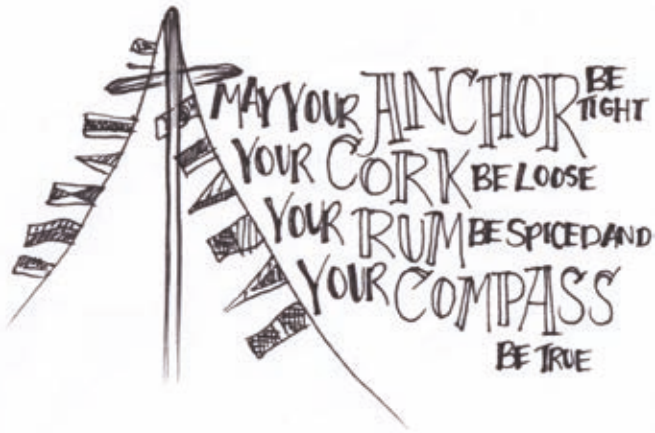 MAY YOUR ANCHOR BE TIGHT
YOUR CORK BE LOOSE
YOUR RUM BE SPICED AND
YOUR COMPASS
BE TRUE